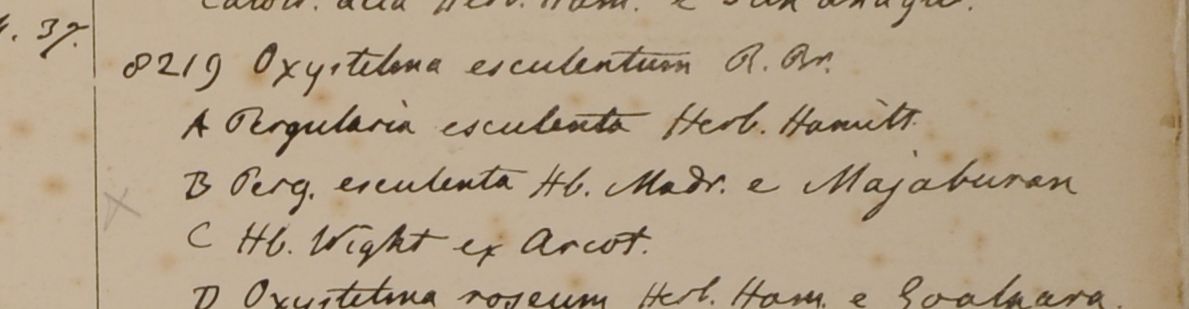 Herb. Ham. e
4. 37.
8219 Oxystelma esculentum R. Br.
A Pergularia esculenta Herb. Hamilt.
B Perg. esculenta Hb. Madr. e Majaburan
C Hb. Wight ex Arcot.
D Oxystelma roseum Herb. Ham. e Goalpara.